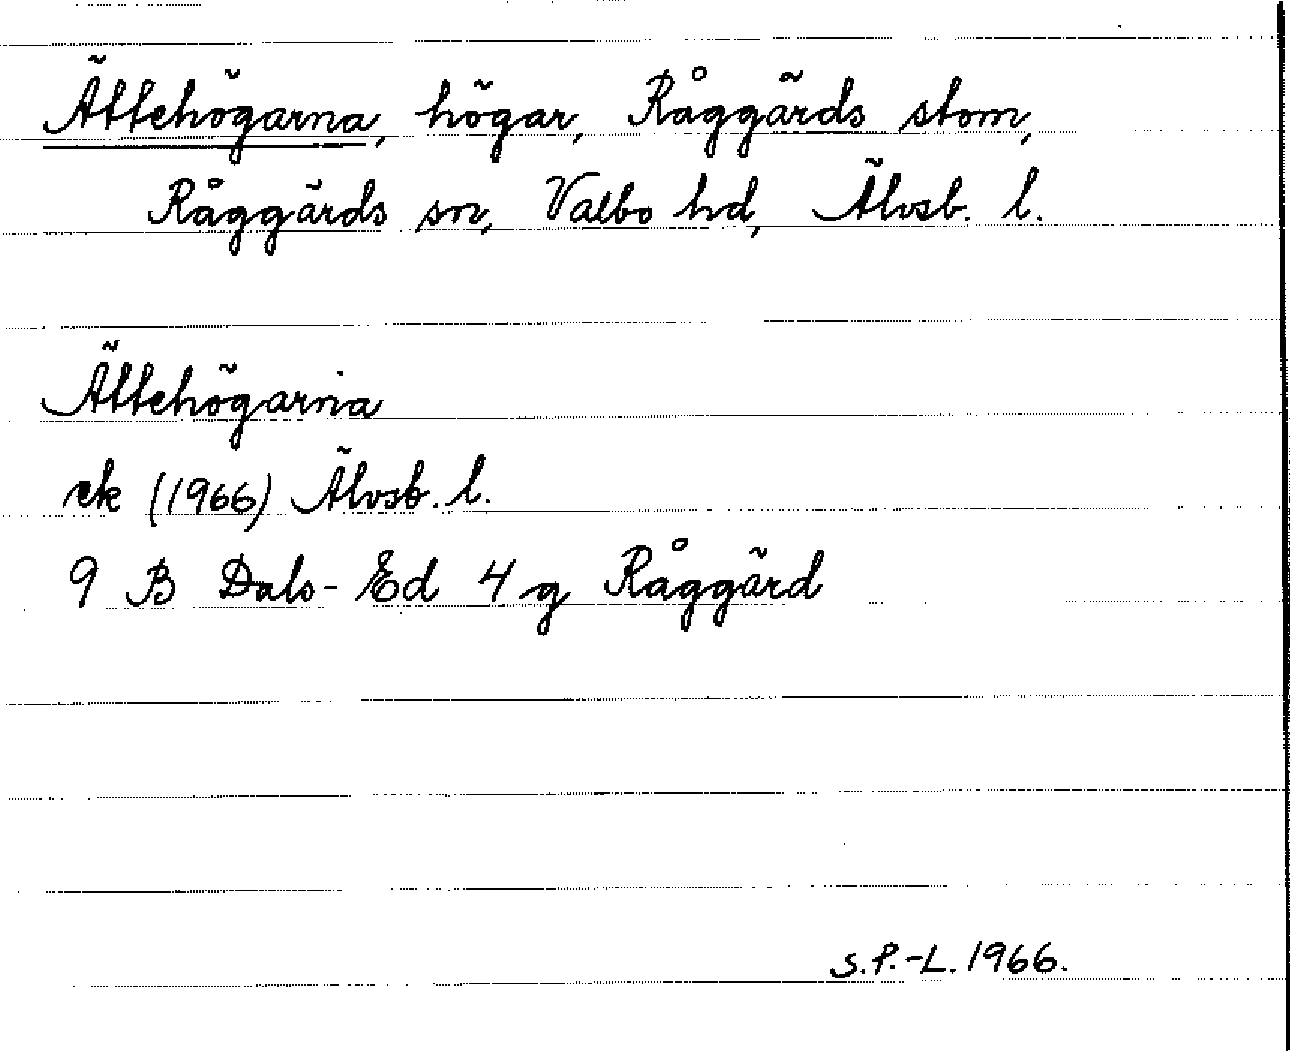 Ättehögarna, högar, Råggärds stom,
Råggärds sn, Valbo hd, Älvsb. l.
Ättehögarna
ek (1966) Älvsb. l.
9 B Dals-Ed 4 g Råggärd
S.P.-L. 1966.